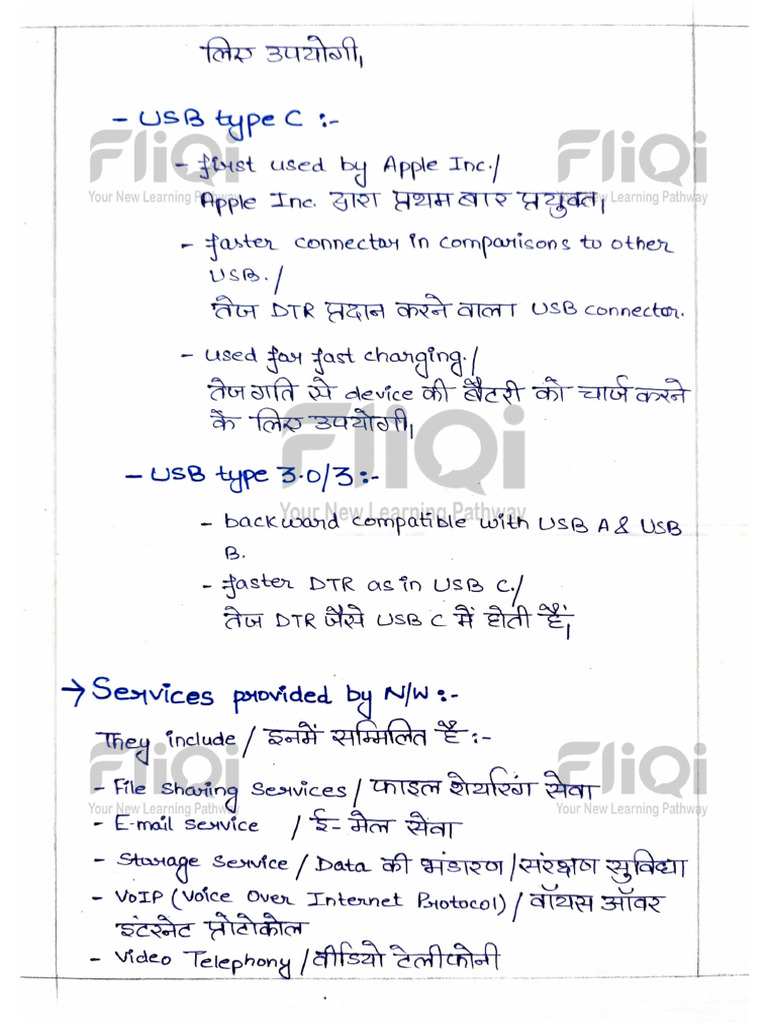 लिए उपयोगी,
- USB type C :-
- first used by Apple Inc./
Apple Inc. द्वारा प्रथम बार प्रयुक्त,
- faster connector in comparisons to other
USB./
तेज DTR प्रदान करने वाला USB connector.
- used for fast charging./
तेज गति से device की बैटरी को चार्ज करने
के लिए उपयोगी,
- USB type 3.0/3 :-
- backward compatible with USB A & USB
B.
- faster DTR as in USB C./
तेज DTR जैसे USB C में होती हैं,
→ Services provided by N/W :-
They include / इनमें सम्मिलित है :-
- File sharing services / फाइल शेयरिंग सेवा
- E-mail service / ई- मेल सेवा
- Storage service / Data की भंडारण / संरक्षण सुविधा
- VoIP (Voice Over Internet Protocol) / वॉयस ऑवर
इंटरनेट प्रोटोकोल
- Video Telephony / वीडियो टेलीफोनी
FliQi
Your New Learning Pathway
FliQi
Your New Learning Pathway
FliQi
Your New Learning Pathway
FliQi
Your New Learning Pathway
FliQi
Your New Learning Pathway